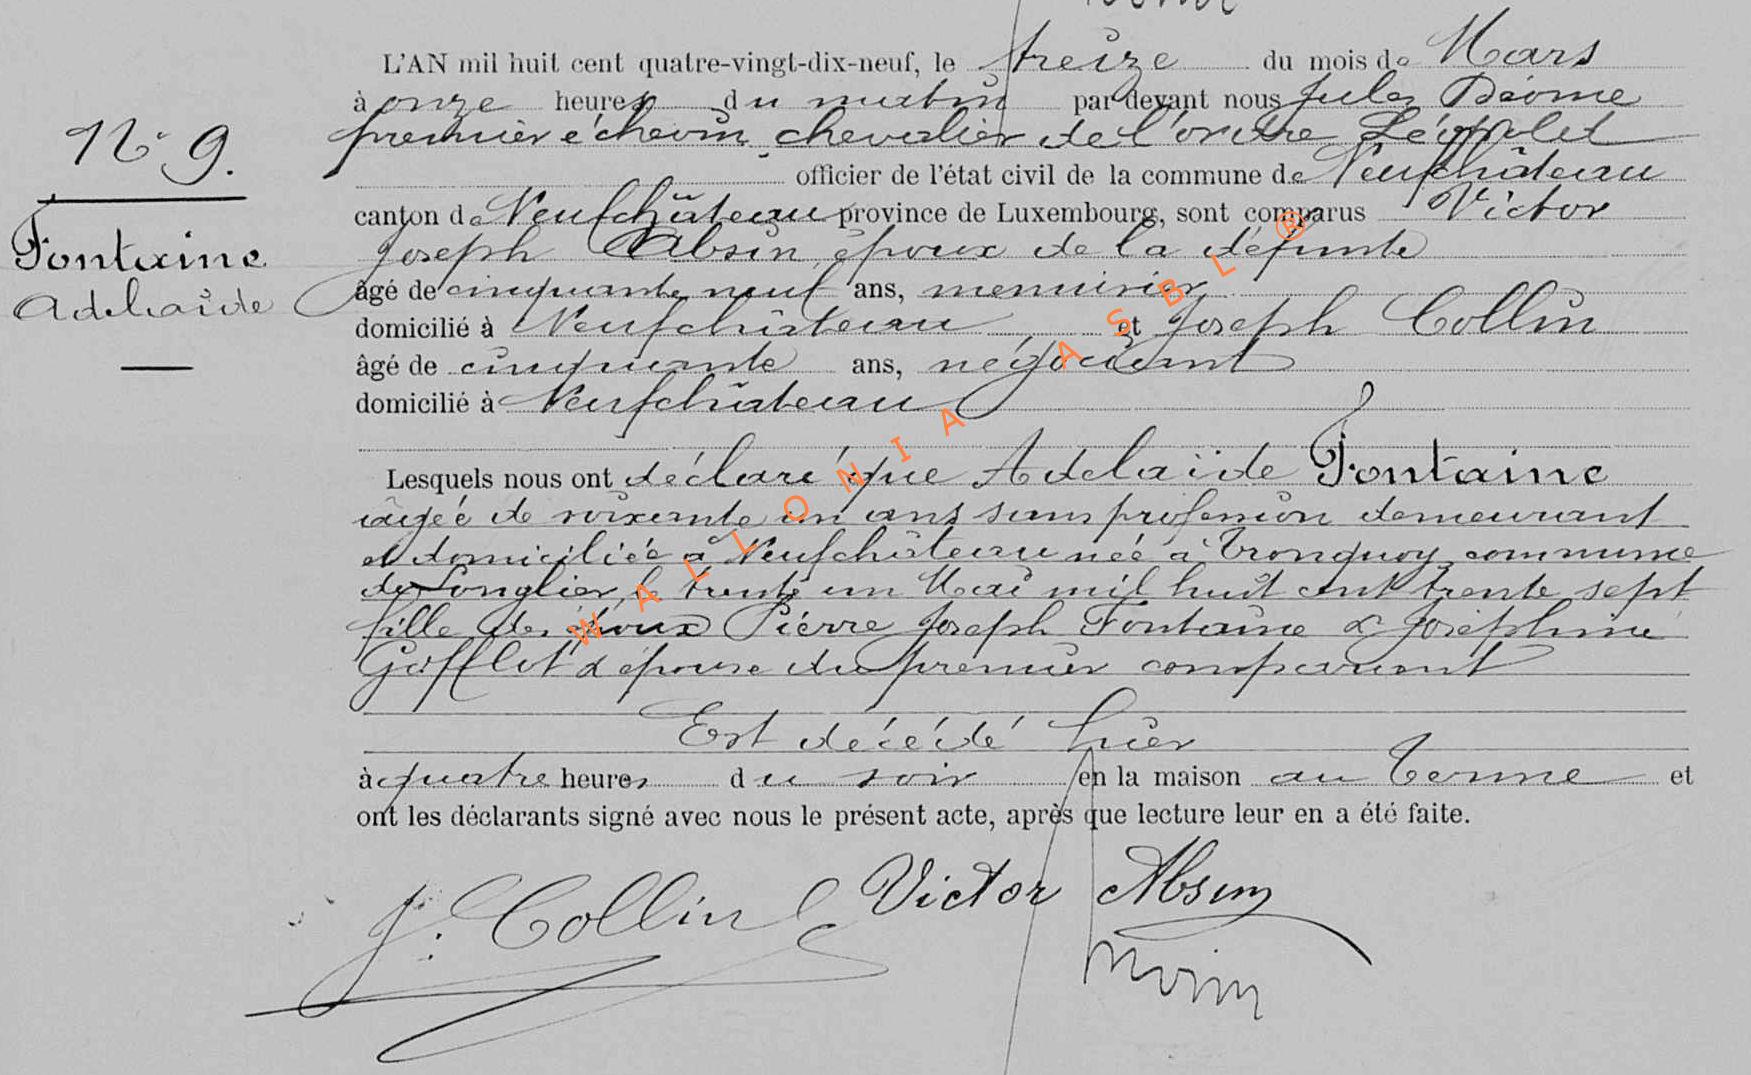 L'AN mil huit cent quatre-vingt-dix-neuf, le treize du mois de Mars
à onze heures du matin par devant nous Jules
premier échevin, chevalier de l'ordre Léopold
N° 9.
officier de l'état civil de la commune de Neufchâteau
canton de Neufchâteau province de Luxembourg, sont comparus Victor
Fontaine
Joseph Absin, époux de la défunte
Adelaïde
âgé de cinquante neuf ans, menuisier
domicilié à Neufchâteau et Joseph Collin
âgé de cinquante ans, négociant
domicilié à Neufchâteau
Lesquels nous ont déclaré que Adelaïde Fontaine
âgée de soixante un ans sans profession demeurant
et domiciliée à Neufchâteau née à Tronquoy, commune
de Longlier, le trente un Mai mil huit cent trente sept
fille des époux Pierre Joseph Fontaine & Joséphine
Gofflot & épouse du premier comparant
Est décédé hier
à quatre heures du soir en la maison au Terme et
ont les déclarants signé avec nous le présent acte, après que lecture leur en a été faite.
J. Collin Victor Absin
WALLONIA ASBL ®